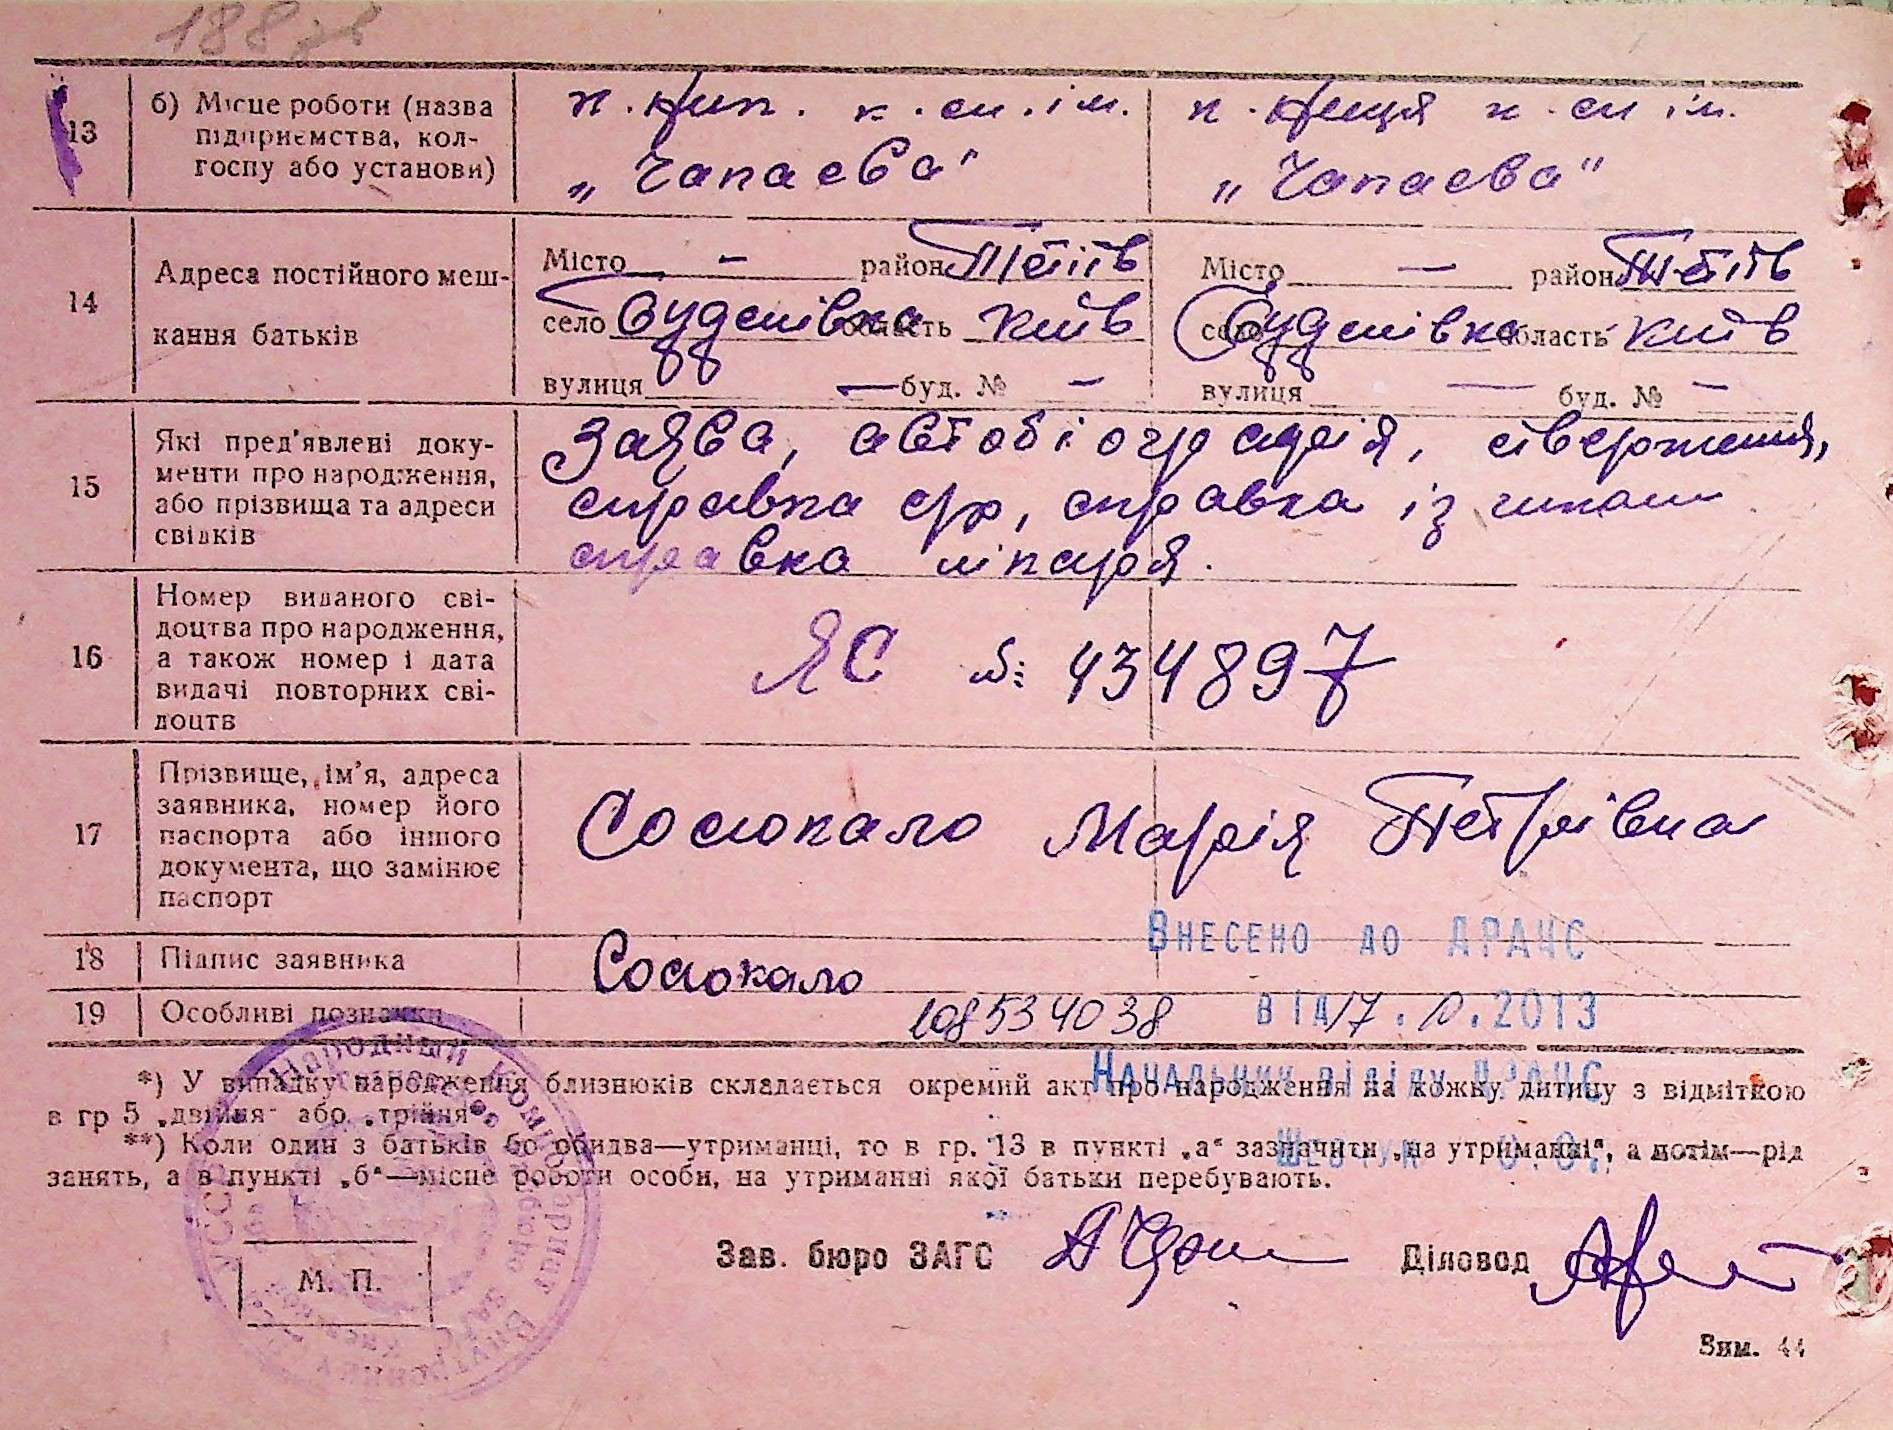 188
13
б) Місце роботи (назва підприємства, колгоспу або установи)
к. см. ім. „Чапаєва"
к. см. ім. „Чапаєва"
14
Адреса постійного мешкання батьків
Місто — район Тетіїв
село область Київ
вулиця — буд. № —
Місто — район Тетіїв
село область Київ
вулиця — буд. № —
15
Які пред'явлені документи про народження, або прізвища та адреси свідків
Заява, автобіографія, ствердження,
справка с/р, справка із
справка лікаря.
16
Номер виданого свідоцтва про народження, а також номер і дата видачі повторних свідоцтв
ЯС №: 434897
17
Прізвище, ім'я, адреса заявника, номер його паспорта або іншого документа, що замінює паспорт
Сосюкало Марія Петрівна
Внесено до ДРАЦС
18
Підпис заявника
Сосюкало
19
Особливі позначки
108534038
від 17.10.2013
Начальник відділу ДРАЦС
*) У випадку народження близнюків складається окремий акт про народження на кожну дитину з відміткою
в гр 5 „двійня" або „трійня".
**) Коли один з батьків бо обидва—утриманці, то в гр. 13 в пункті „а" зазначити „на утриманні", а потім—рід
занять, а в пункті „б"—місце роботи особи, на утриманні якої батьки перебувають.
М. П.
Зав. бюро ЗАГС
Діловод
Вим. 44